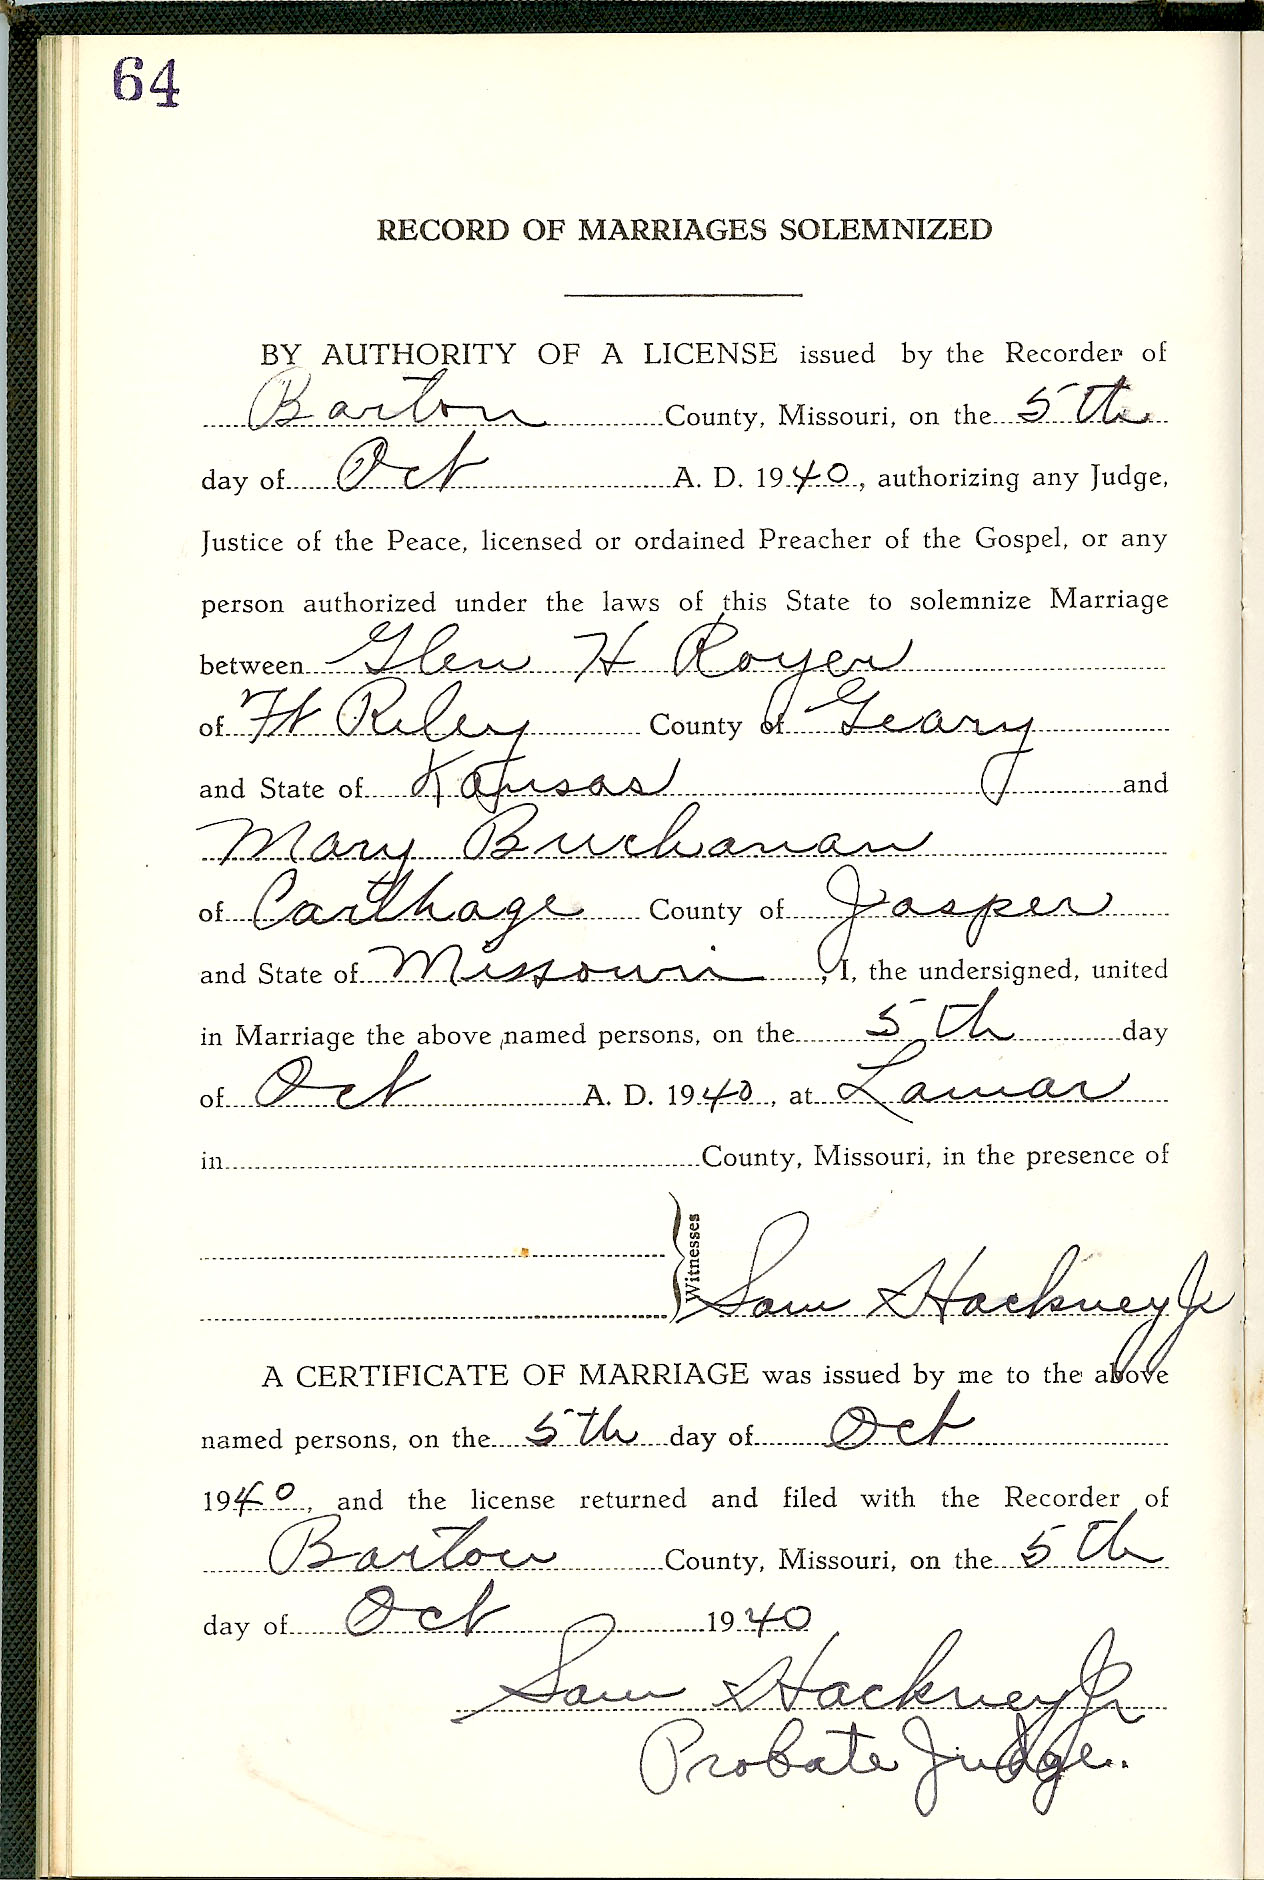 64
RECORD OF MARRIAGES SOLEMNIZED
BY AUTHORITY OF A LICENSE issued by the Recorder of
Barton County, Missouri, on the 5th
day of Oct A. D. 1940, authorizing any Judge,
Justice of the Peace, licensed or ordained Preacher of the Gospel, or any
person authorized under the laws of this State to solemnize Marriage
between Glen H Royer
of Ft Riley County of Geary
and State of Kansas and
Mary Buchanan
of Carthage County of Jasper
and State of Missouri, I, the undersigned, united
in Marriage the above named persons, on the 5th day
of Oct A. D. 1940, at Lamar
in County, Missouri, in the presence of
Witnesses
Sam Hackney Jr
A CERTIFICATE OF MARRIAGE was issued by me to the above
named persons, on the 5th day of Oct
1940, and the license returned and filed with the Recorder of
Barton County, Missouri, on the 5th
day of Oct 1940
Sam Hackney Jr
Probate Judge.